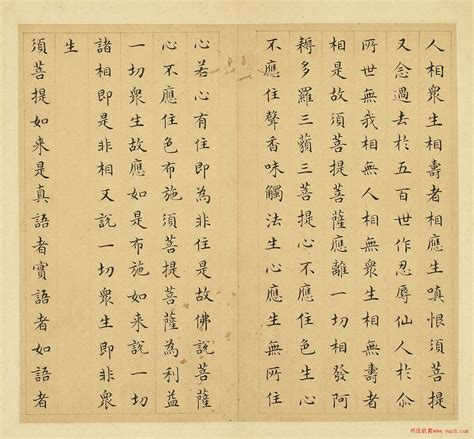 人相眾生相壽者相應生嗔恨須菩提
又念過去於五百世作忍辱仙人於尒
所世無我相無人相無眾生相無壽者
相是故須菩提菩薩應離一切相發阿
耨多羅三藐三菩提心不應住色生心
不應住聲香味觸法生心應生無所住
心若心有住即為非住是故佛說菩薩
心不應住色布施須菩提菩薩為利益
一切眾生故應如是布施如來說一切
諸相即是非相又說一切眾生即非眾
生
須菩提如來是真語者實語者如語者
书法欣赏 www.yac8.com